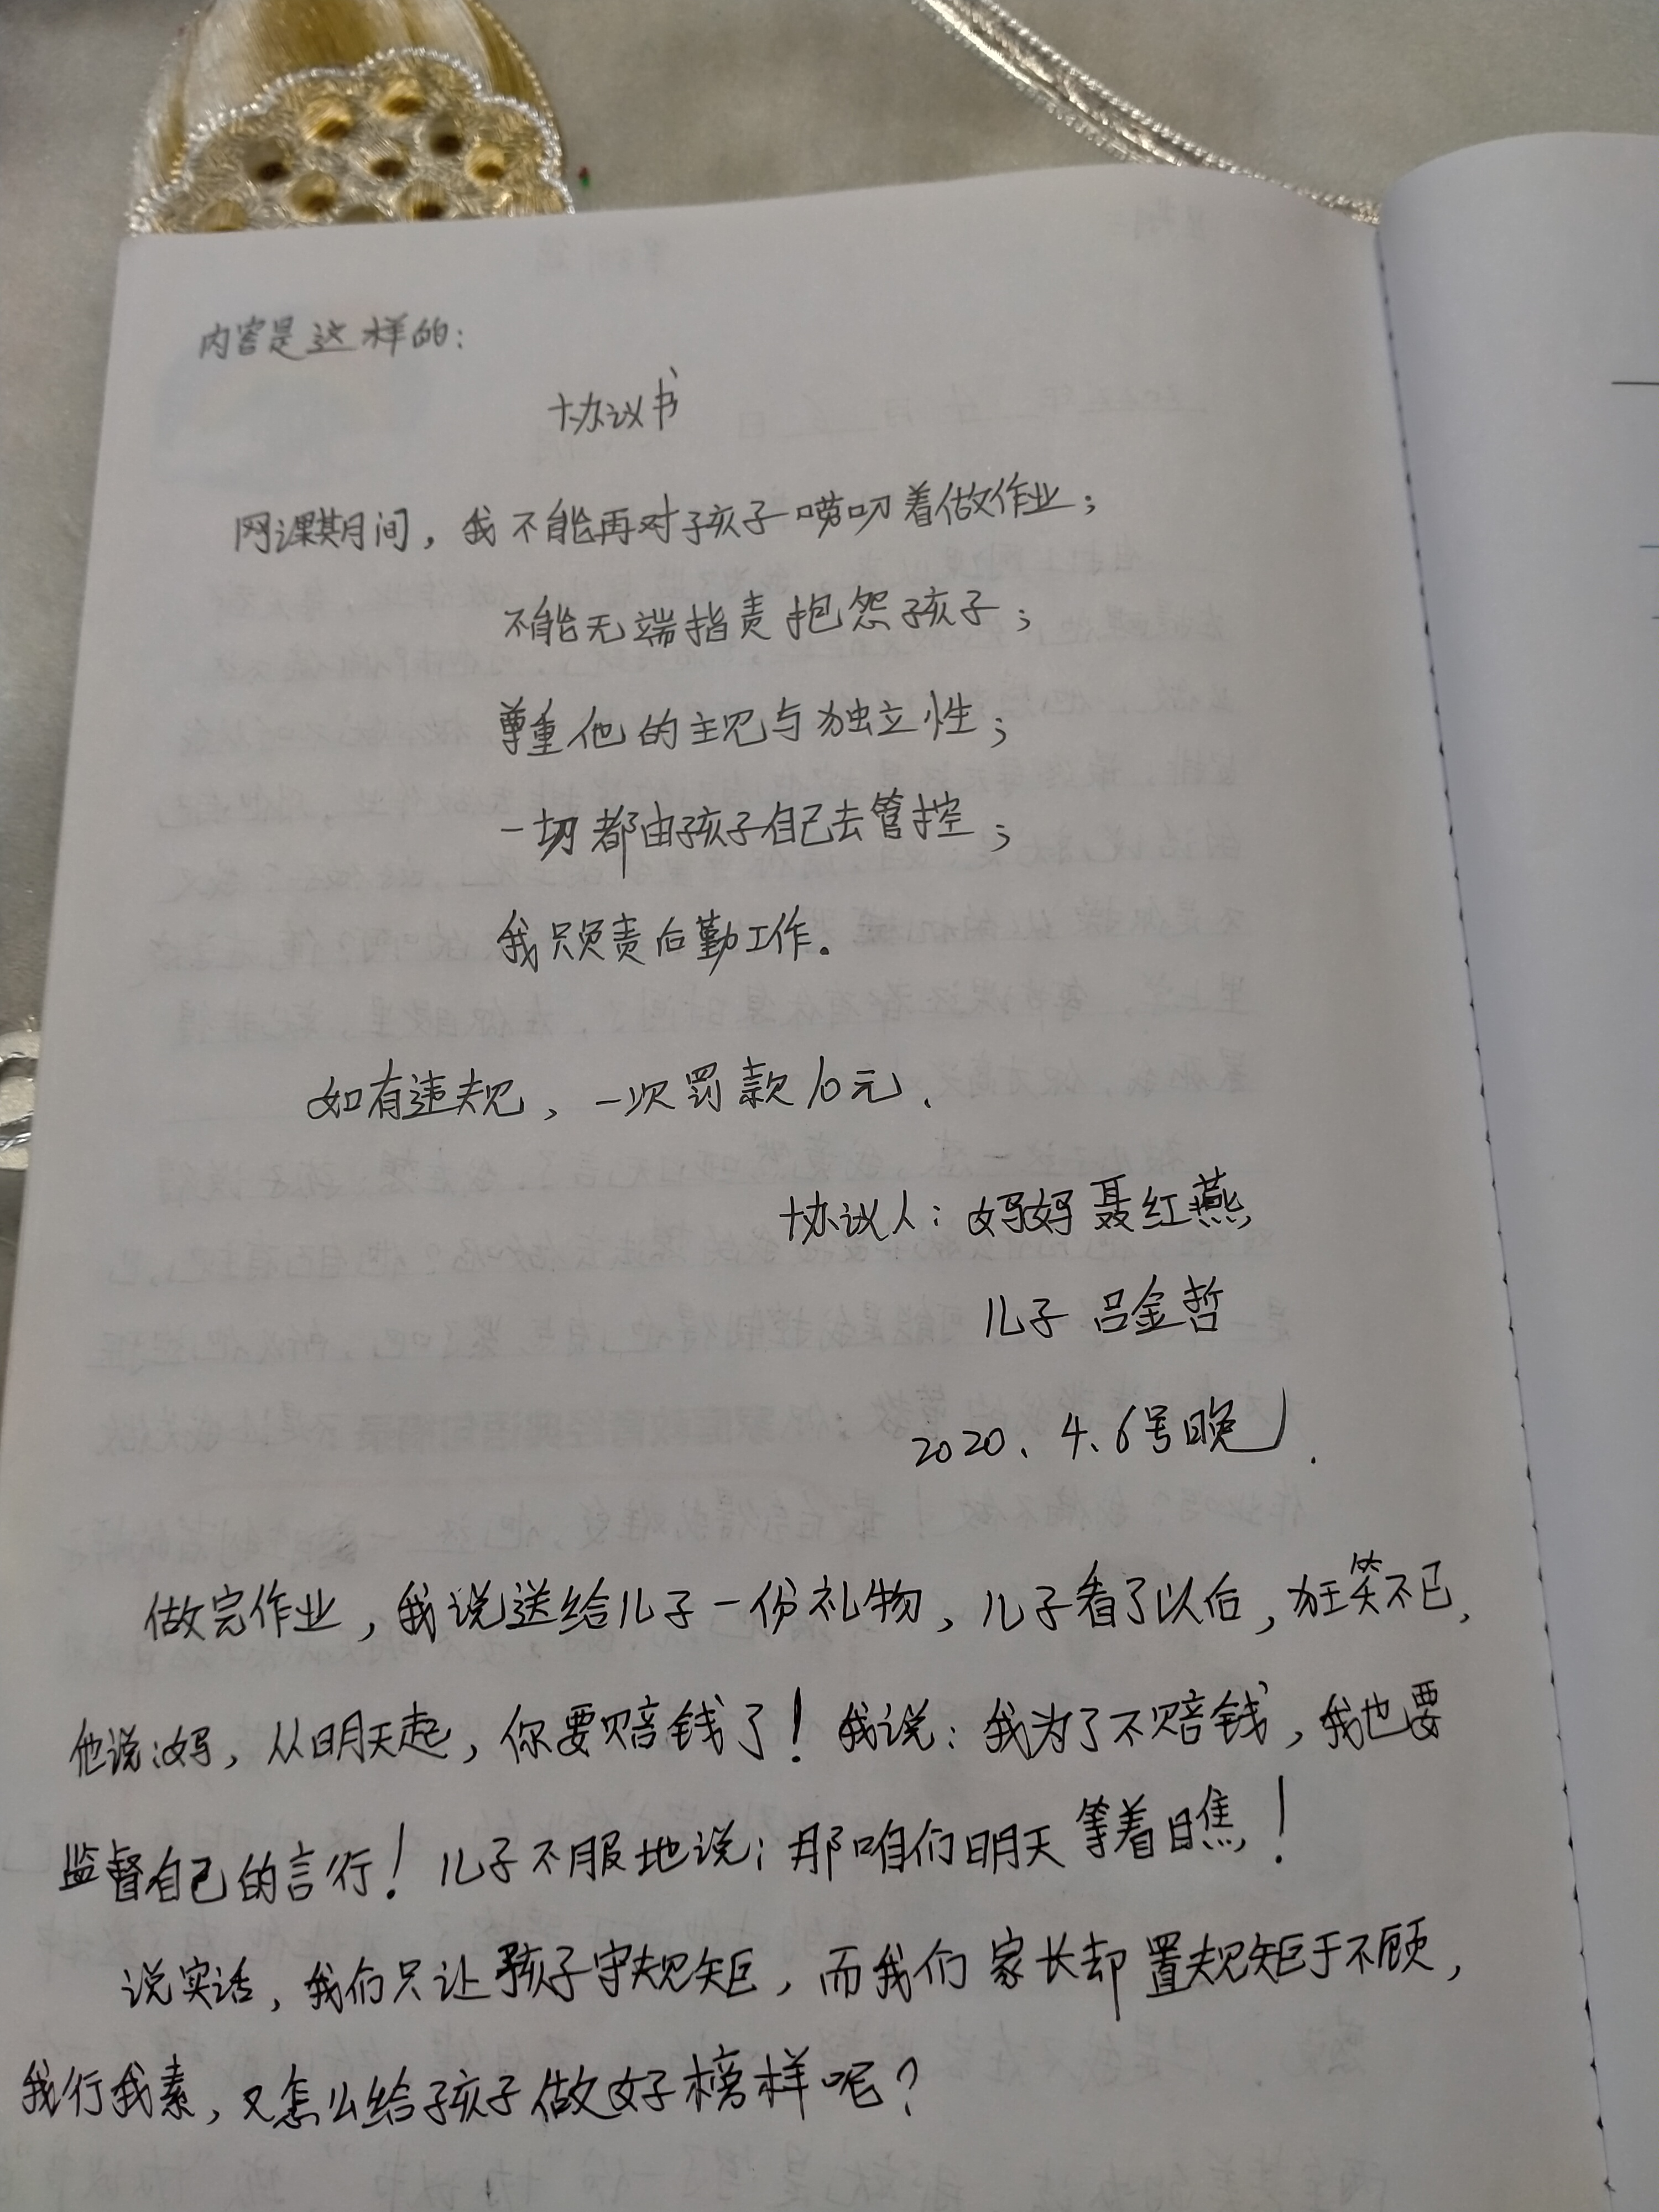 内容是这样的：
协议书
网课期间，我不能再对孩子唠叨着做作业；
不能无端指责抱怨孩子；
尊重他的主见与独立性；
一切都由孩子自己去管控；
我只负责后勤工作。
如有违规，一次罚款10元.
协议人：妈妈聂红燕
儿子 吕金哲
2020、4、6号晚.
做完作业，我说送给儿子一份礼物，儿子看了以后，狂笑不已，
他说：妈，从明天起，你要赔钱了！我说：我为了不赔钱，我也要
监督自己的言行！儿子不服地说：那咱们明天等着瞧！
说实话，我们只让孩子守规矩，而我们家长却置规矩于不顾，
我行我素，又怎么给孩子做好榜样呢？